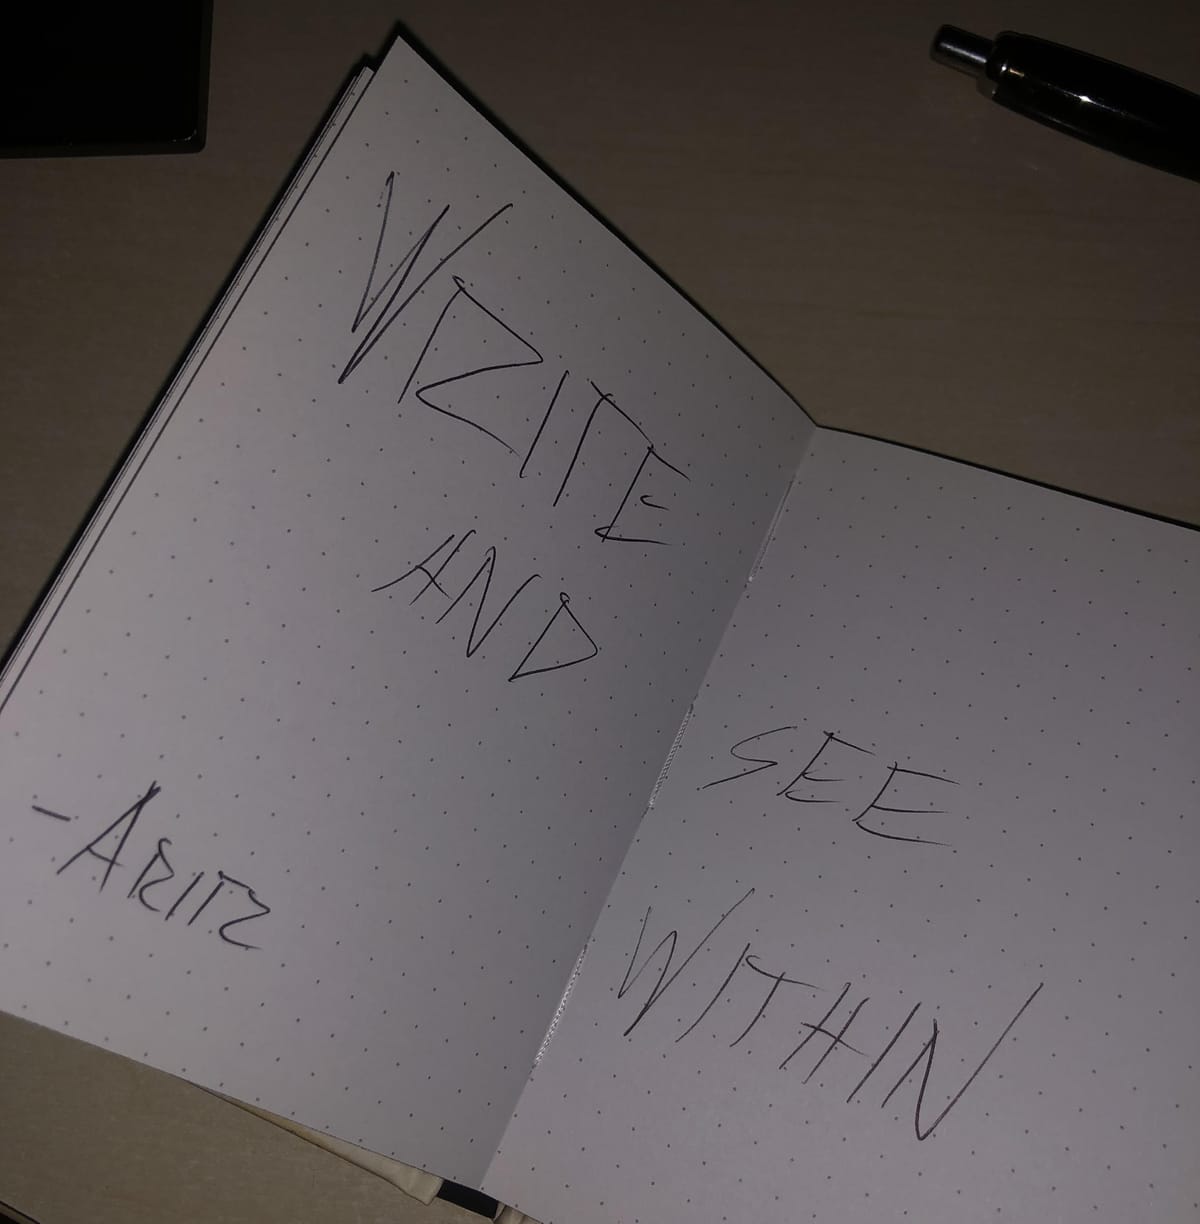 WRITE
AND
- ARITZ
SEE
WITHIN